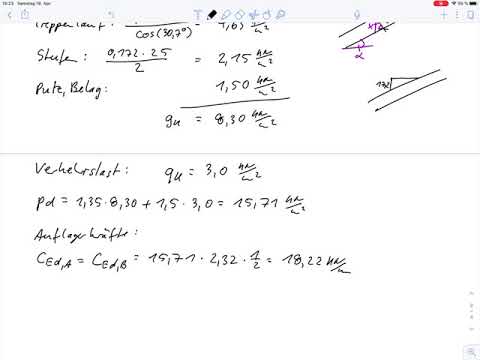 15:23 Samstag 18. Apr.
90 %
Treppenlauf: cos(30,7°) =
Stufen: 0,172 · 25 / 2 = 2,15 kN/m²
17,2
α
Putz, Belag: 1,50 kN/m²
gk = 8,30 kN/m²
Verkehrslast: qk = 3,0 kN/m²
pd = 1,35 · 8,30 + 1,5 · 3,0 = 15,71 kN/m²
Auflagerkräfte:
CEd,A = CEd,B = 15,71 · 2,32 · 1/2 = 18,22 kN/m